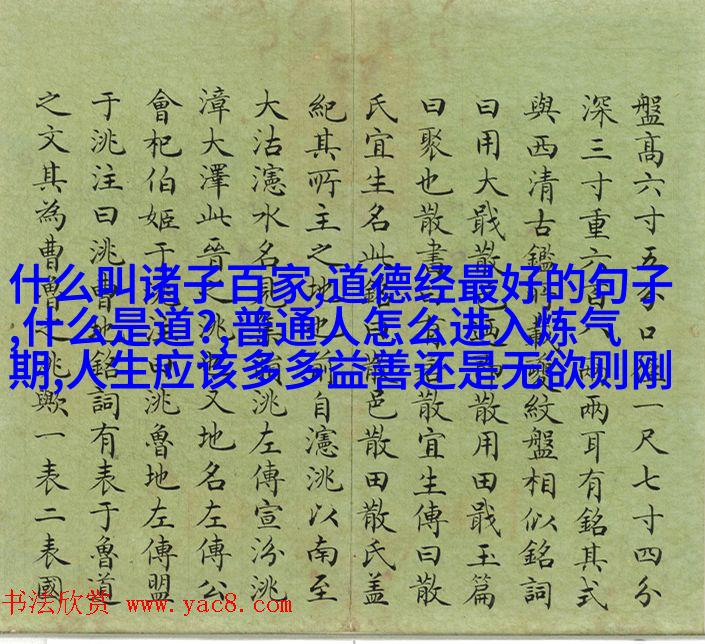 什么叫诸子百家,道德经最好的句子
,什么是道?,普通人怎么进入炼气
期,人生应该多多益善还是无欲则刚
盤高六寸五分口一尺七寸四分
深三寸重六兩兩耳有銘其式
與西清古鑑所載夔紋盤相似銘詞
曰用大戢散邑散用田戢玉篇
曰聚也散書有散宜生傳曰散
氏宜生名此銘曰邑散田散氏盖
紀其所主之地地前自瀗洮以南至
大沽瀗水名見洮左傳宣汾洮
漳大澤此晉之洮又地名左傳公
會杞伯姬于洮魯地左傳盟
于洮注曰洮曹地銘詞有表于魯道
之文其為曹魯之洮歟一表二表國
书法欣赏 www.yac8.com